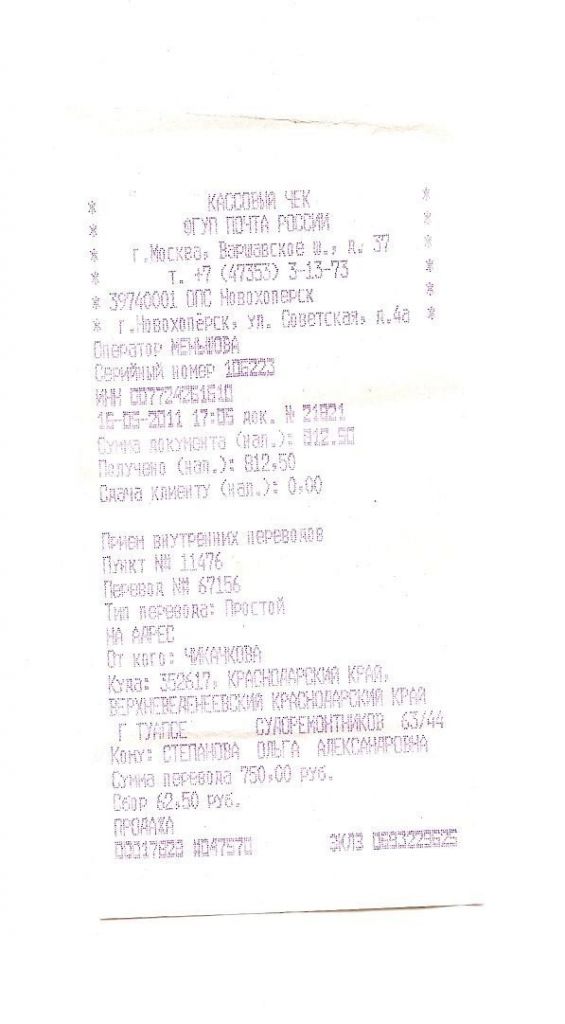 * КАССОВЫЙ ЧЕК *
* ФГУП ПОЧТА РОССИИ *
* г.Москва, Варшавское ш., д. 37 *
* т. +7 (47353) 3-13-73 *
* 39740001 ОПС Новохоперск *
* г.Новохопёрск, ул. Советская, д.4а *
Оператор МЕНЬШОВА
Серийный номер 106223
ИНН 007724261610
16-05-2011 17:05 док. N 21821
Сумма документа (нал.): 812.50
Получено (нал.): 812,50
Сдача клиенту (нал.): 0,00
Прием внутренних переводов
Пункт №№ 11476
Перевод №№ 67156
Тип перевода: Простой
НА АДРЕС
От кого: ЧИКАЧКОВА
Куда: 352617, КРАСНОДАРСКИЙ КРАЙ,
ВЕРХНЕВЕДЕНЕЕВСКИЙ КРАСНОДАРСКИЙ КРАЙ
Г ТУАПСЕ СУДОРЕМОНТНИКОВ 63/44
Кому: СТЕПАНОВА ОЛЬГА АЛЕКСАНДРОВНА
Сумма перевода 750,00 руб.
Сбор 62,50 руб.
ПРОДАЖА
ЭКЛЗ